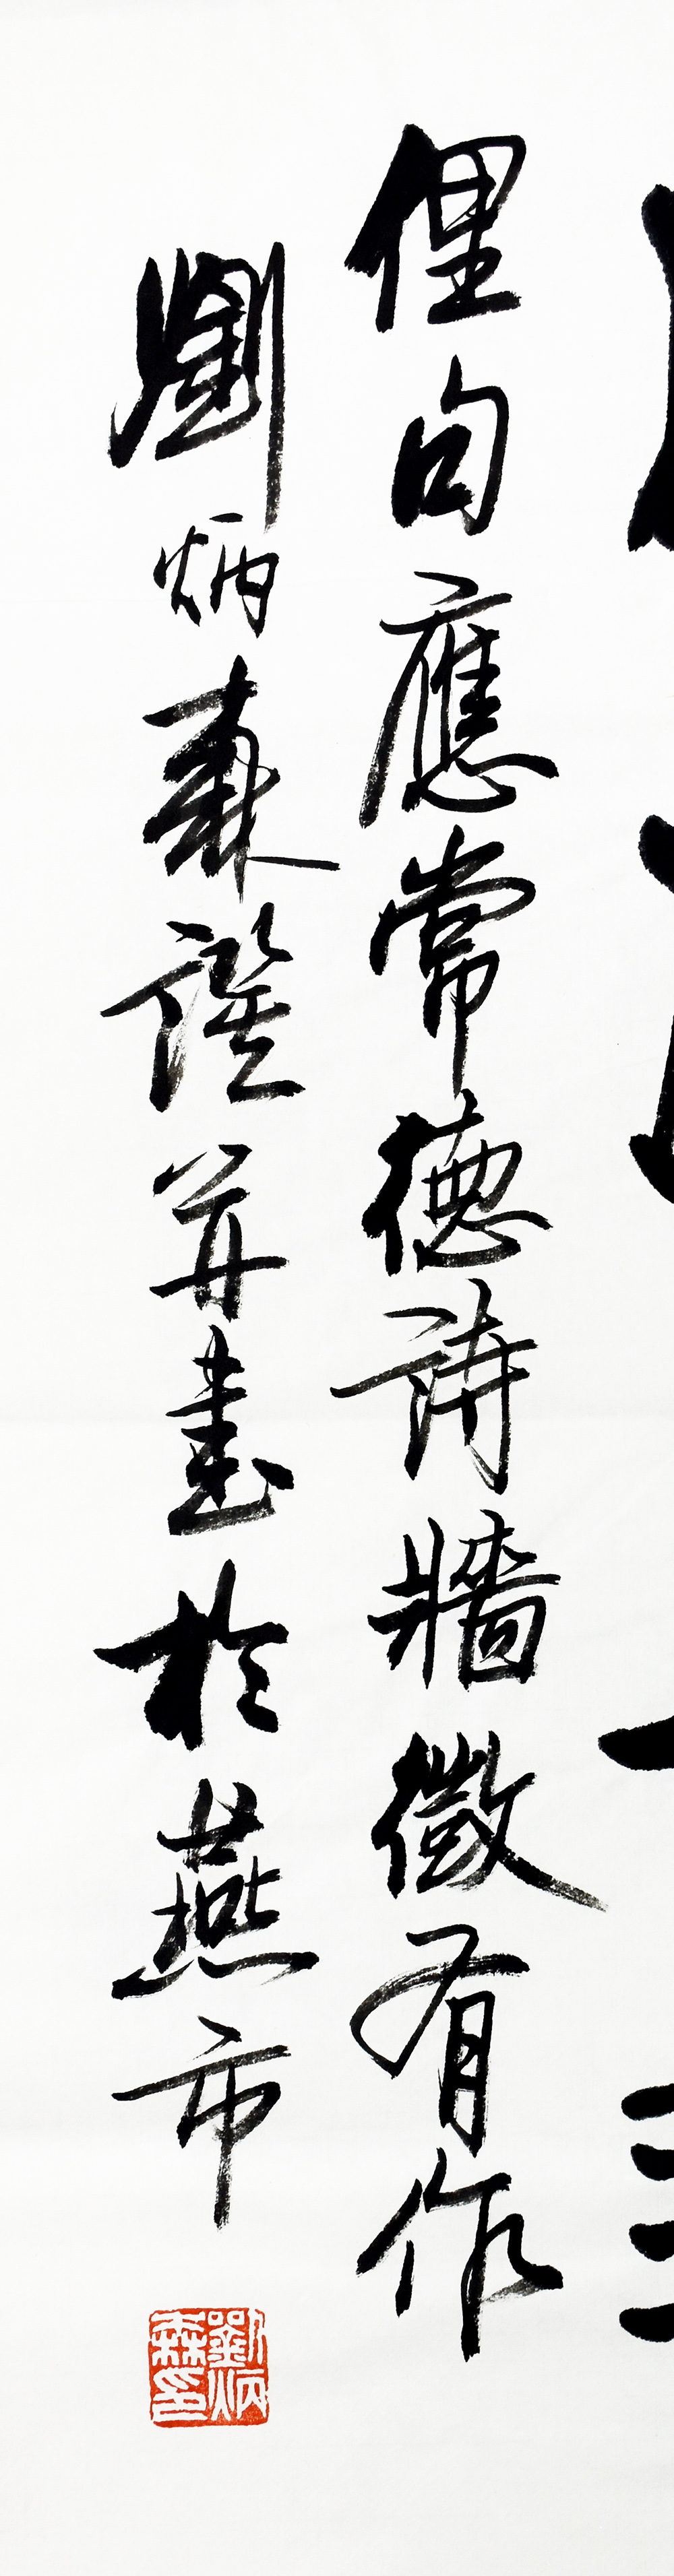 俚句應常德詩牆徵有作
劉炳森譔并書於燕市
劉炳森印